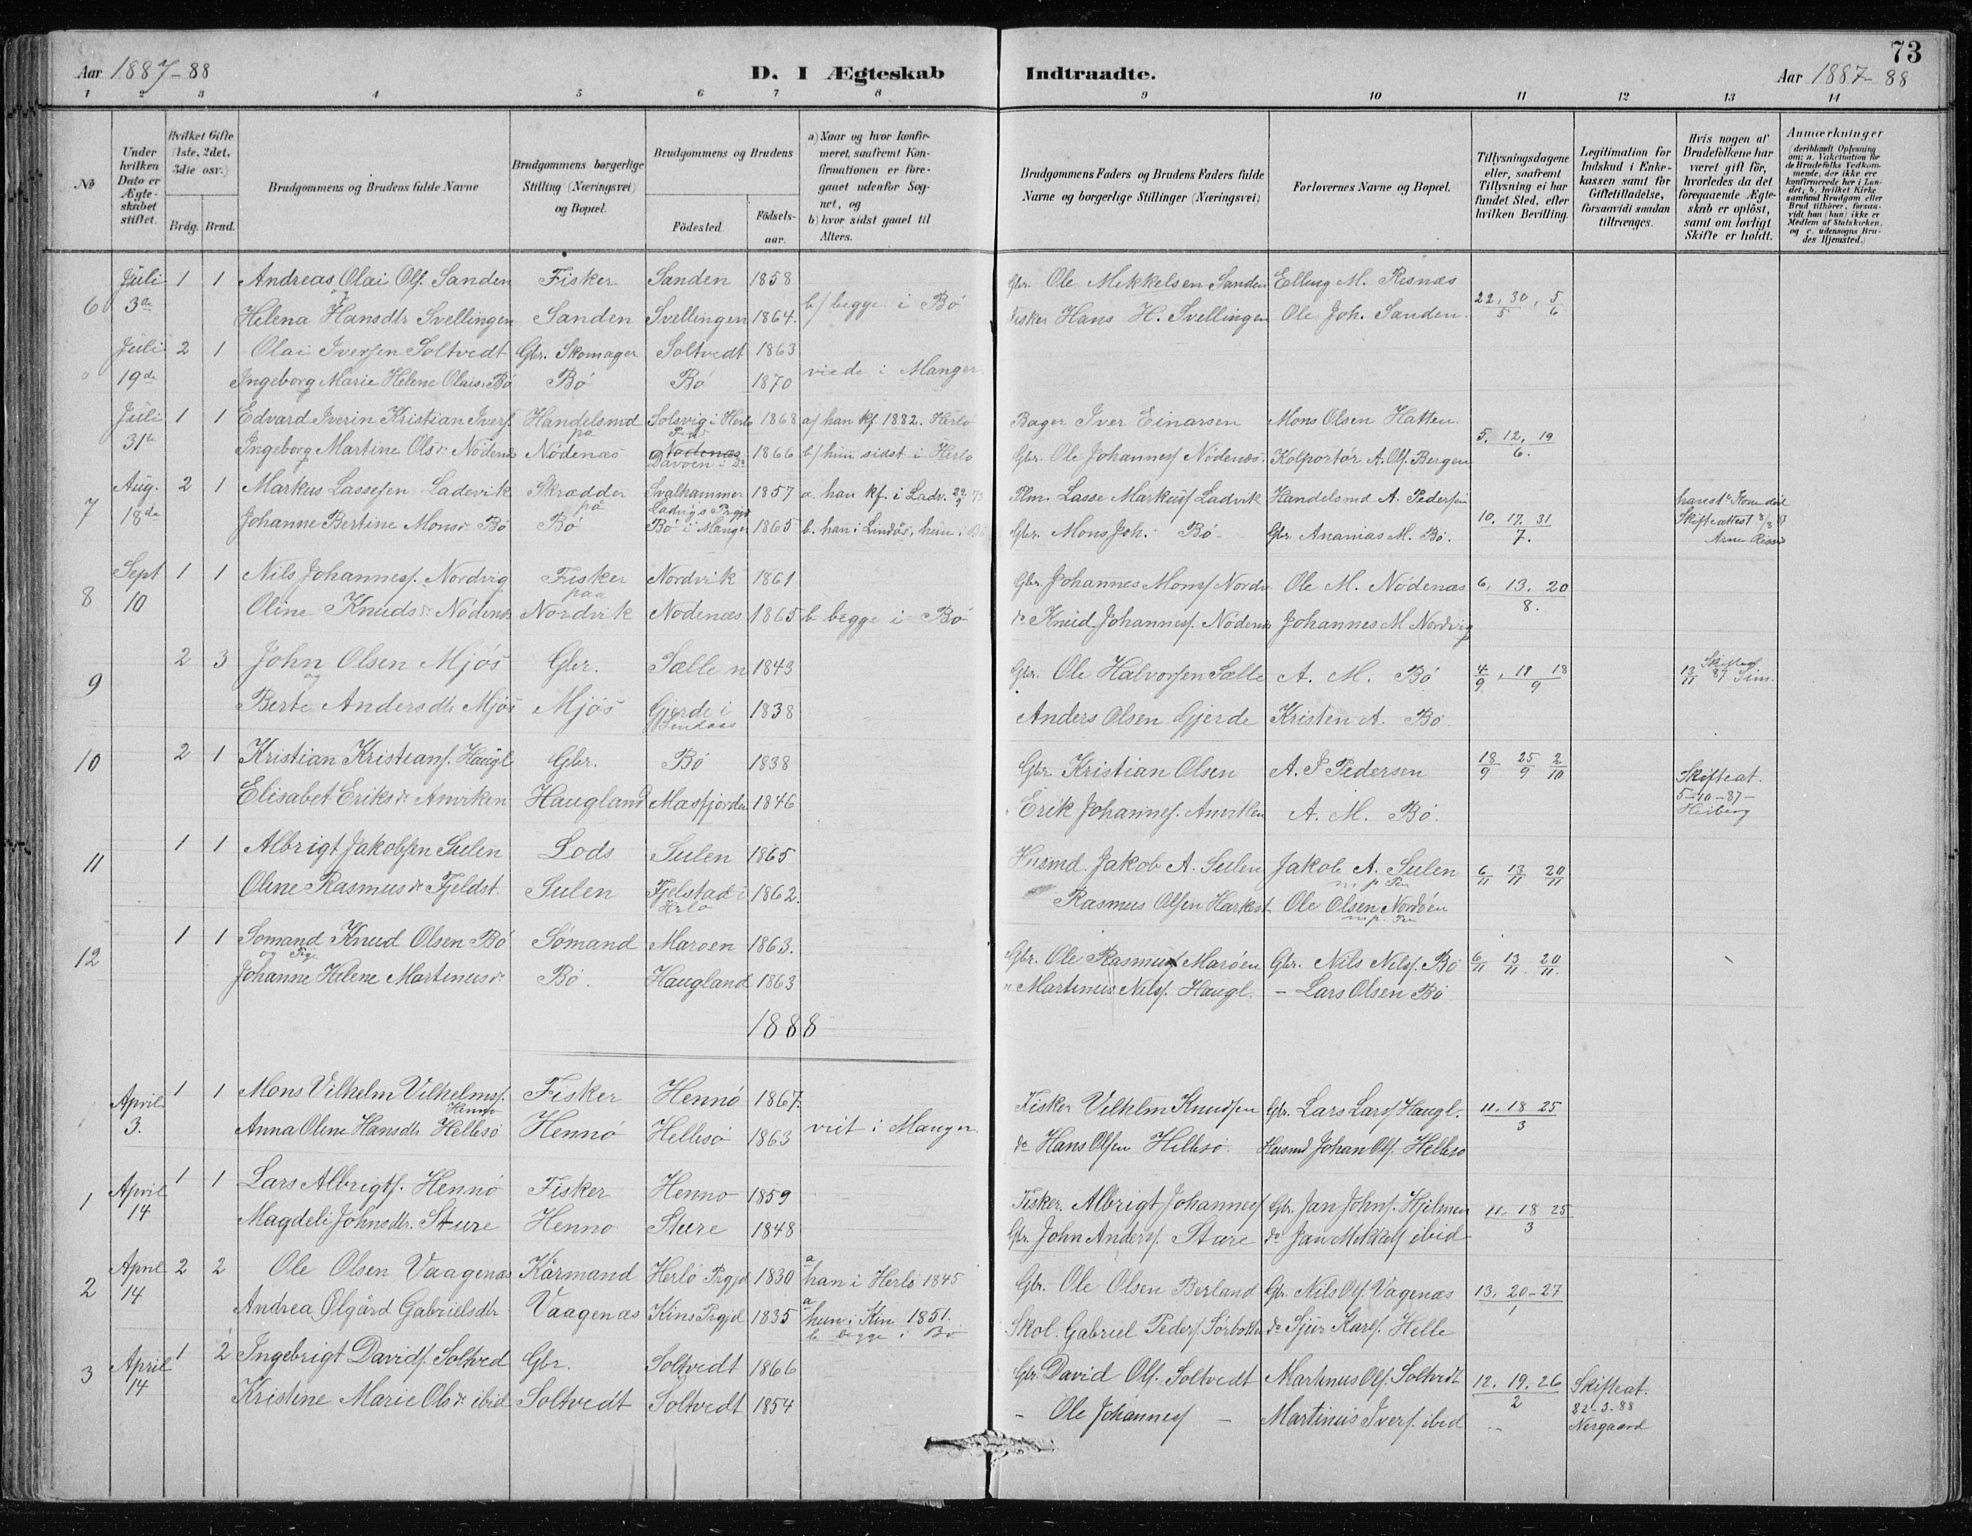 73
Aar 1887-88
D. I Ægteskab
Indtraadte.
Aar 1887-88
1 2 3 4 5 6 7 8 9 10 11 12 13 14
No
Under hvilken Dato er Ægteskabet stiftet.
Hvilket Gifte (1ste, 2det, 3die osv.)
Brdg. Brud.
Brudgommens og Brudens fulde Navne
Brudgommens borgerlige Stilling (Næringsvei) og Bopæl.
Brudgommens og Brudens
Födested.
Födsels-aar.
a) Naar og hvor konfirmeret, saafremt Konfirmationen er foregaaet udenfor Sognet, og
b) hvor sidst gaaet til Alters.
Brudgommens Faders og Brudens Faders fulde Navne og borgerlige Stillinger (Næringsvei)
Forlovernes Navne og Bopæl.
Tillysningsdagene eller, saafremt Tillysning ei har fundet Sted, efter hvilken Bevilling.
Legitimation for Indskud i Enkekassen samt for Giftetilladelse, forsaavidt saadan tiltrænges.
Hvis nogen af Brudefolkene har været gift før, hvorledes da det foregaaende Ægteskab er opløst, samt om lovligt Skifte er holdt.
Anmærkninger (deriblandt Oplysning om: a. Vakcination for de Brudefolks Vedkommende, der ikke ere konfirmerede her i Landet, b. hvilket Kirkesamfund Brudgom eller Brud tilhører, forsaavidt han (hun) ikke er Medlem af Statskirken, og c. udensogns Brudes Hjemsted.)
6 Juli 3die 1 1 Andreas Olai Ols. Sanden Fisker Sanden 1858 Gbr. Ole Mikkelsen Sanden Elling M. Risnæs 22, 30, 5
og Helena Hansdtr Svellingen Sanden Svellingen 1864. b/ begge i Bö Fisker Hans H. Svellingen Ole Joh. Sanden 5 6
Juli 2 1 Olai Iversen Soltvedt Gbr. Skomager Soltvedt 1863
19de Ingeborg Marie Helene Olais. Bö Bö Bö 1870 viede i Manger
Juli 1 1 Edvard Iverin Kristian Ivers. Handelsmd Solsvig i Herlö 1868 a/ han kf. 1882. Herlö Bager Iver Einarsen Mons Olsen Hatten 5. 12. 19
31te Ingeborg Martine Ols dr Nödenæs paa Nödenæs Nödenæs Davöen 1866 b/ hun sidst i Herlö Gbr. Ole Johannes. Nödenæs. Kolportör A. Ols. Bergen 6.
7 Aug. 2 1 Markus Lassesen Ladevik Skrædder Svalhammer Ladvigs Prgjd 1857 a. han kf. i Ladv. Plm. Lasse Markus. Ladvik Handelsmd A. Pedersen 10. 17. 31
18de Johanne Bertine Mons dr Bö paa Bö Bö i Manger 1865 b. han i Lindås, hun i Bö Gbr. Mons Joh. Bö Gbr. Ananias M. Bö. 7. Skifteattest 8/8 87
8 Sept 1 1 Nils Johannes. Nordvig Fisker Nordvik 1861 Gbr. Johannes Mons. Nordv. Ole M. Nödenæs 6, 13. 20
10 Oline Knuds dr Nödenæs paa Nordvik Nödenæs 1865 b. begge i Bö do Knud Johannes. Nödenæs Johannes M Nordvig 8.
9 2 3 John Olsen Mjös Gbr. Sælle n 1843 Gbr. Ole Halvorsen Sælle A. M. Bö 4/9, 11 18 Skifteat 13/11 87
og Berte Andersdtr Mjös Mjös Gjerde i Lindaas 1838 Anders Olsen Gjerde Kristen A. Bö. 9
10 2 1 Kristian Kristians. Haugl Gbr. Bö 1838 Gbr. Kristian Olsen A. P Pedersen 18/9 25/9 2/10 Skifteat.
Elisabet Eriks dr Anviken Haugland Masfjorden 1846 Erik Johannes. Anviken A. M. Bö. 5-10-87- Heiberg
11 1 1 Albrigt Jakobsen Sulen Lods Sulen 1865 Husmd. Jakob A. Sulen Jakob A. Sulen 6/11 13/11 20/11
Oline Rasmus dr Fjeldst. Sulen Fjelstad i Herlö 1862. m. p. Pen
Rasmus Olsen Harkest. Ole Olsen Nordöen m. p. Pen
12 1 1 Sömand Knud Olsen Bö Sömand Maröen 1863. Gbr. Ole Rasmus. Maröen Gbr. Nils Nils. Bö 6/11 13/11 20/11
og Pig. Johanne Helene Martinus dr Bö. Haugland 1863 " Martinus Nils. Haugl. – Lars Olsen Bö
1888
April 3. 1 1 Mons Vilhelm Vilhelms. Hennö Fisker Hennö 1867. Fisker Vilhelm Knudsen Gbr. Lars Lars. Haugl. 11. 18 25
Anna Oline Hansdtr Hellesö Hennö Hellesö 1863 viet i Manger. do Hans Olsen Hellesö. Husmd Johan Ols. Hellesö 3
1 April 14 1 1 Lars Albrigts. Hennö Fisker Hennö 1859 Fisker Albrigt Johannes. Gbr. Jan Johns. Hjelmen 11. 18 25
Magdeli Johnsdtr. Sture Hennö Sture 1848 Gbr. John Anders. Sture do Jan Mikkels. ibid 3
2 April 14 2 2 Ole Olsen Vaagenæs Kårmand Herlö Prgjd 1830 a han i Herlö 1845 Gbr. Ole Olsen Berland Gbr. Nils Ols. Vågenæs 13. 20-27
Andrea Olgård Gabrielsdtr Vaagenæs Kins Prgjd 1835 a hun i Kin 1851. Skol. Gabriel Peders. Sørbotten do Sjur Karls. Helle 1
b begge i Bö
3 April 14 1 2 Ingebrigt Davids. Soltved Gbr. Soltvedt 1866 Gbr. David Ols. Soltvedt Martinus Ols. Soltvedt 12. 19. 26 Skifteat.
Kristine Marie Ols dr ibid Soltvedt Soltvedt 1854 – Ole Johannes. – Martinus Ivers. ibid 2 22-3-88 Nergaard